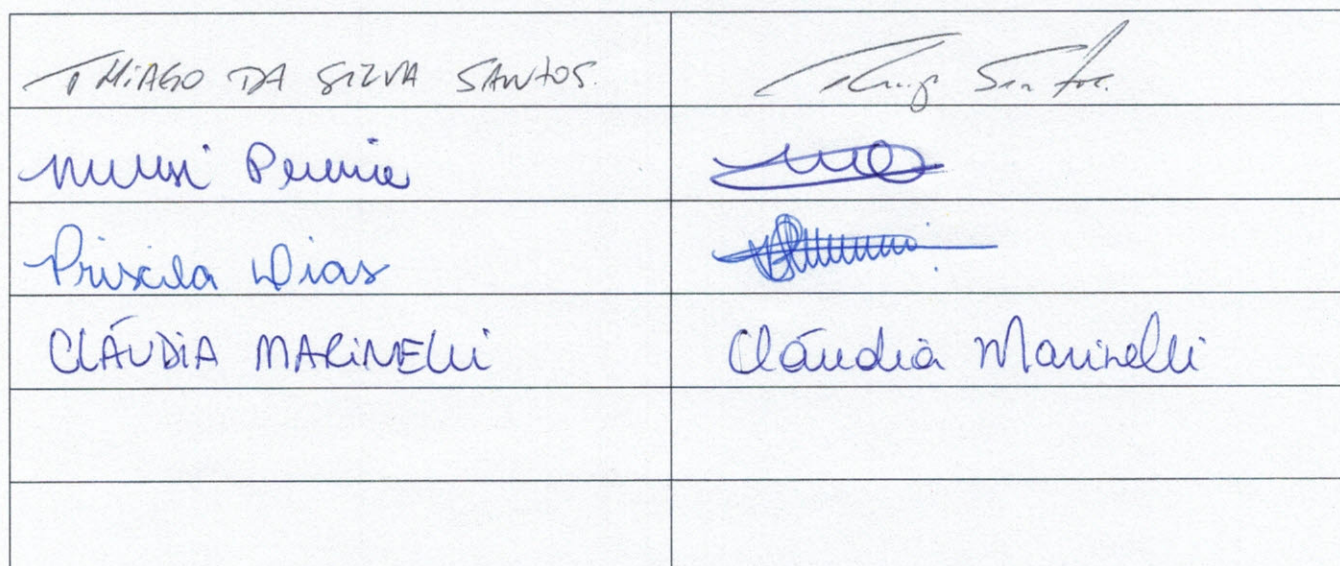 THIAGO DA SILVA SANTOS. Thiago Santos.
Pereira
Priscila Dias
CLÁUDIA MARINELLI Cláudia Marinelli